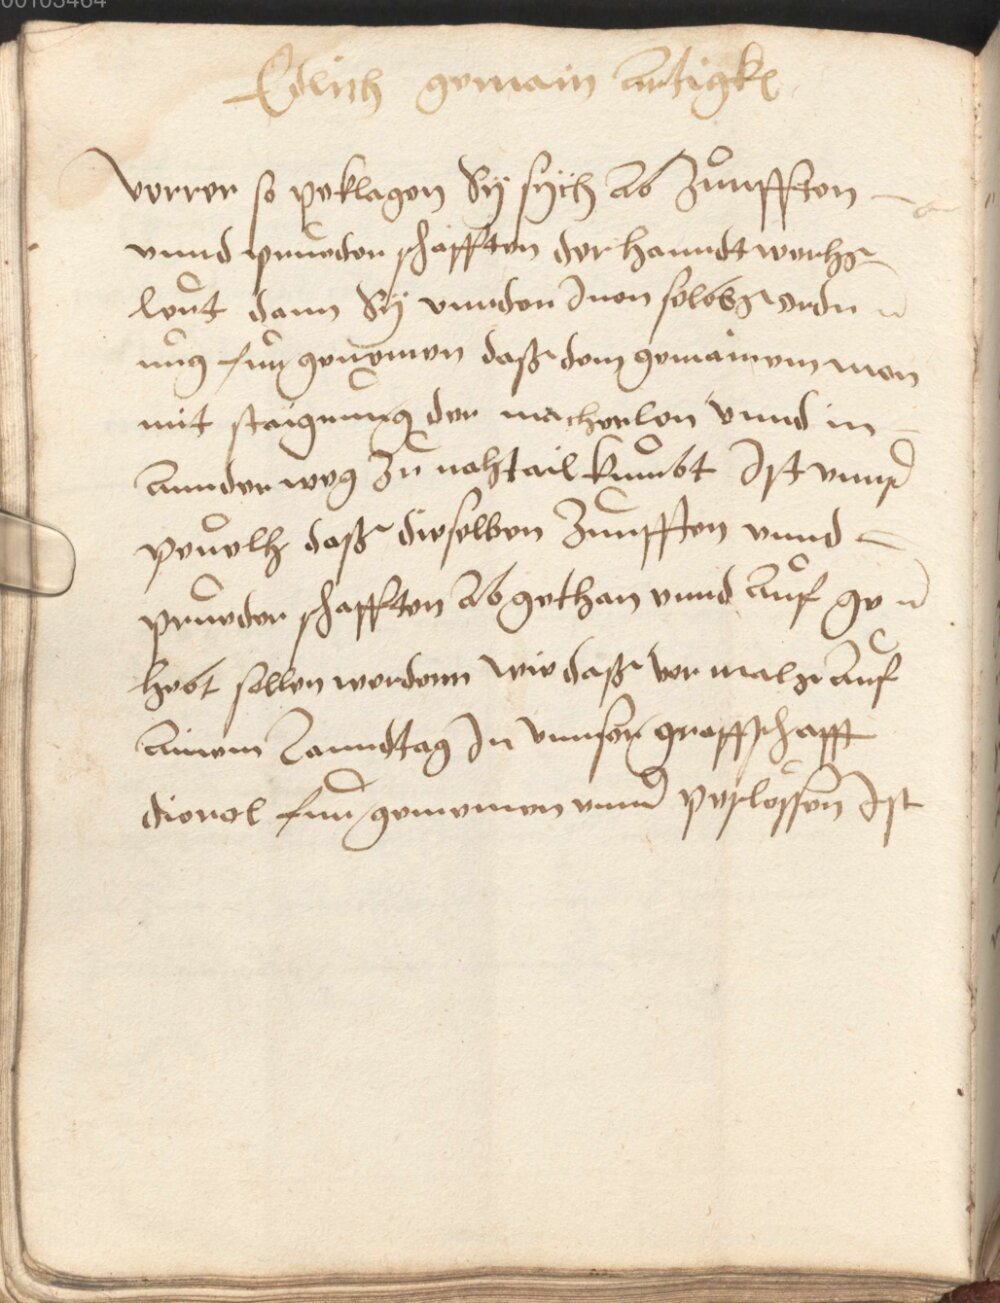 00105464
Etlich gemain Artigkl
Verrer so peklagen Sÿ sÿch ab Zünfften
vnnd prueder schafften der hanndt werchs
leüt dann Sÿ vnnder Inen selbs ordn
ung für genomen daß dem gemainem man
mit staigerung der macherlon vnnd in
annder weg Zu nachtail kumbt Ist vnnser
peuelh daß dieselben Zunfften vnnd
prueder schafften abgethan vnnd auf ge
hebt sollen werdenn wie daß vor mals auf
ainem Lanndtag In vnnser graffschafft
dierol für genomen vnnd peslossen Ist